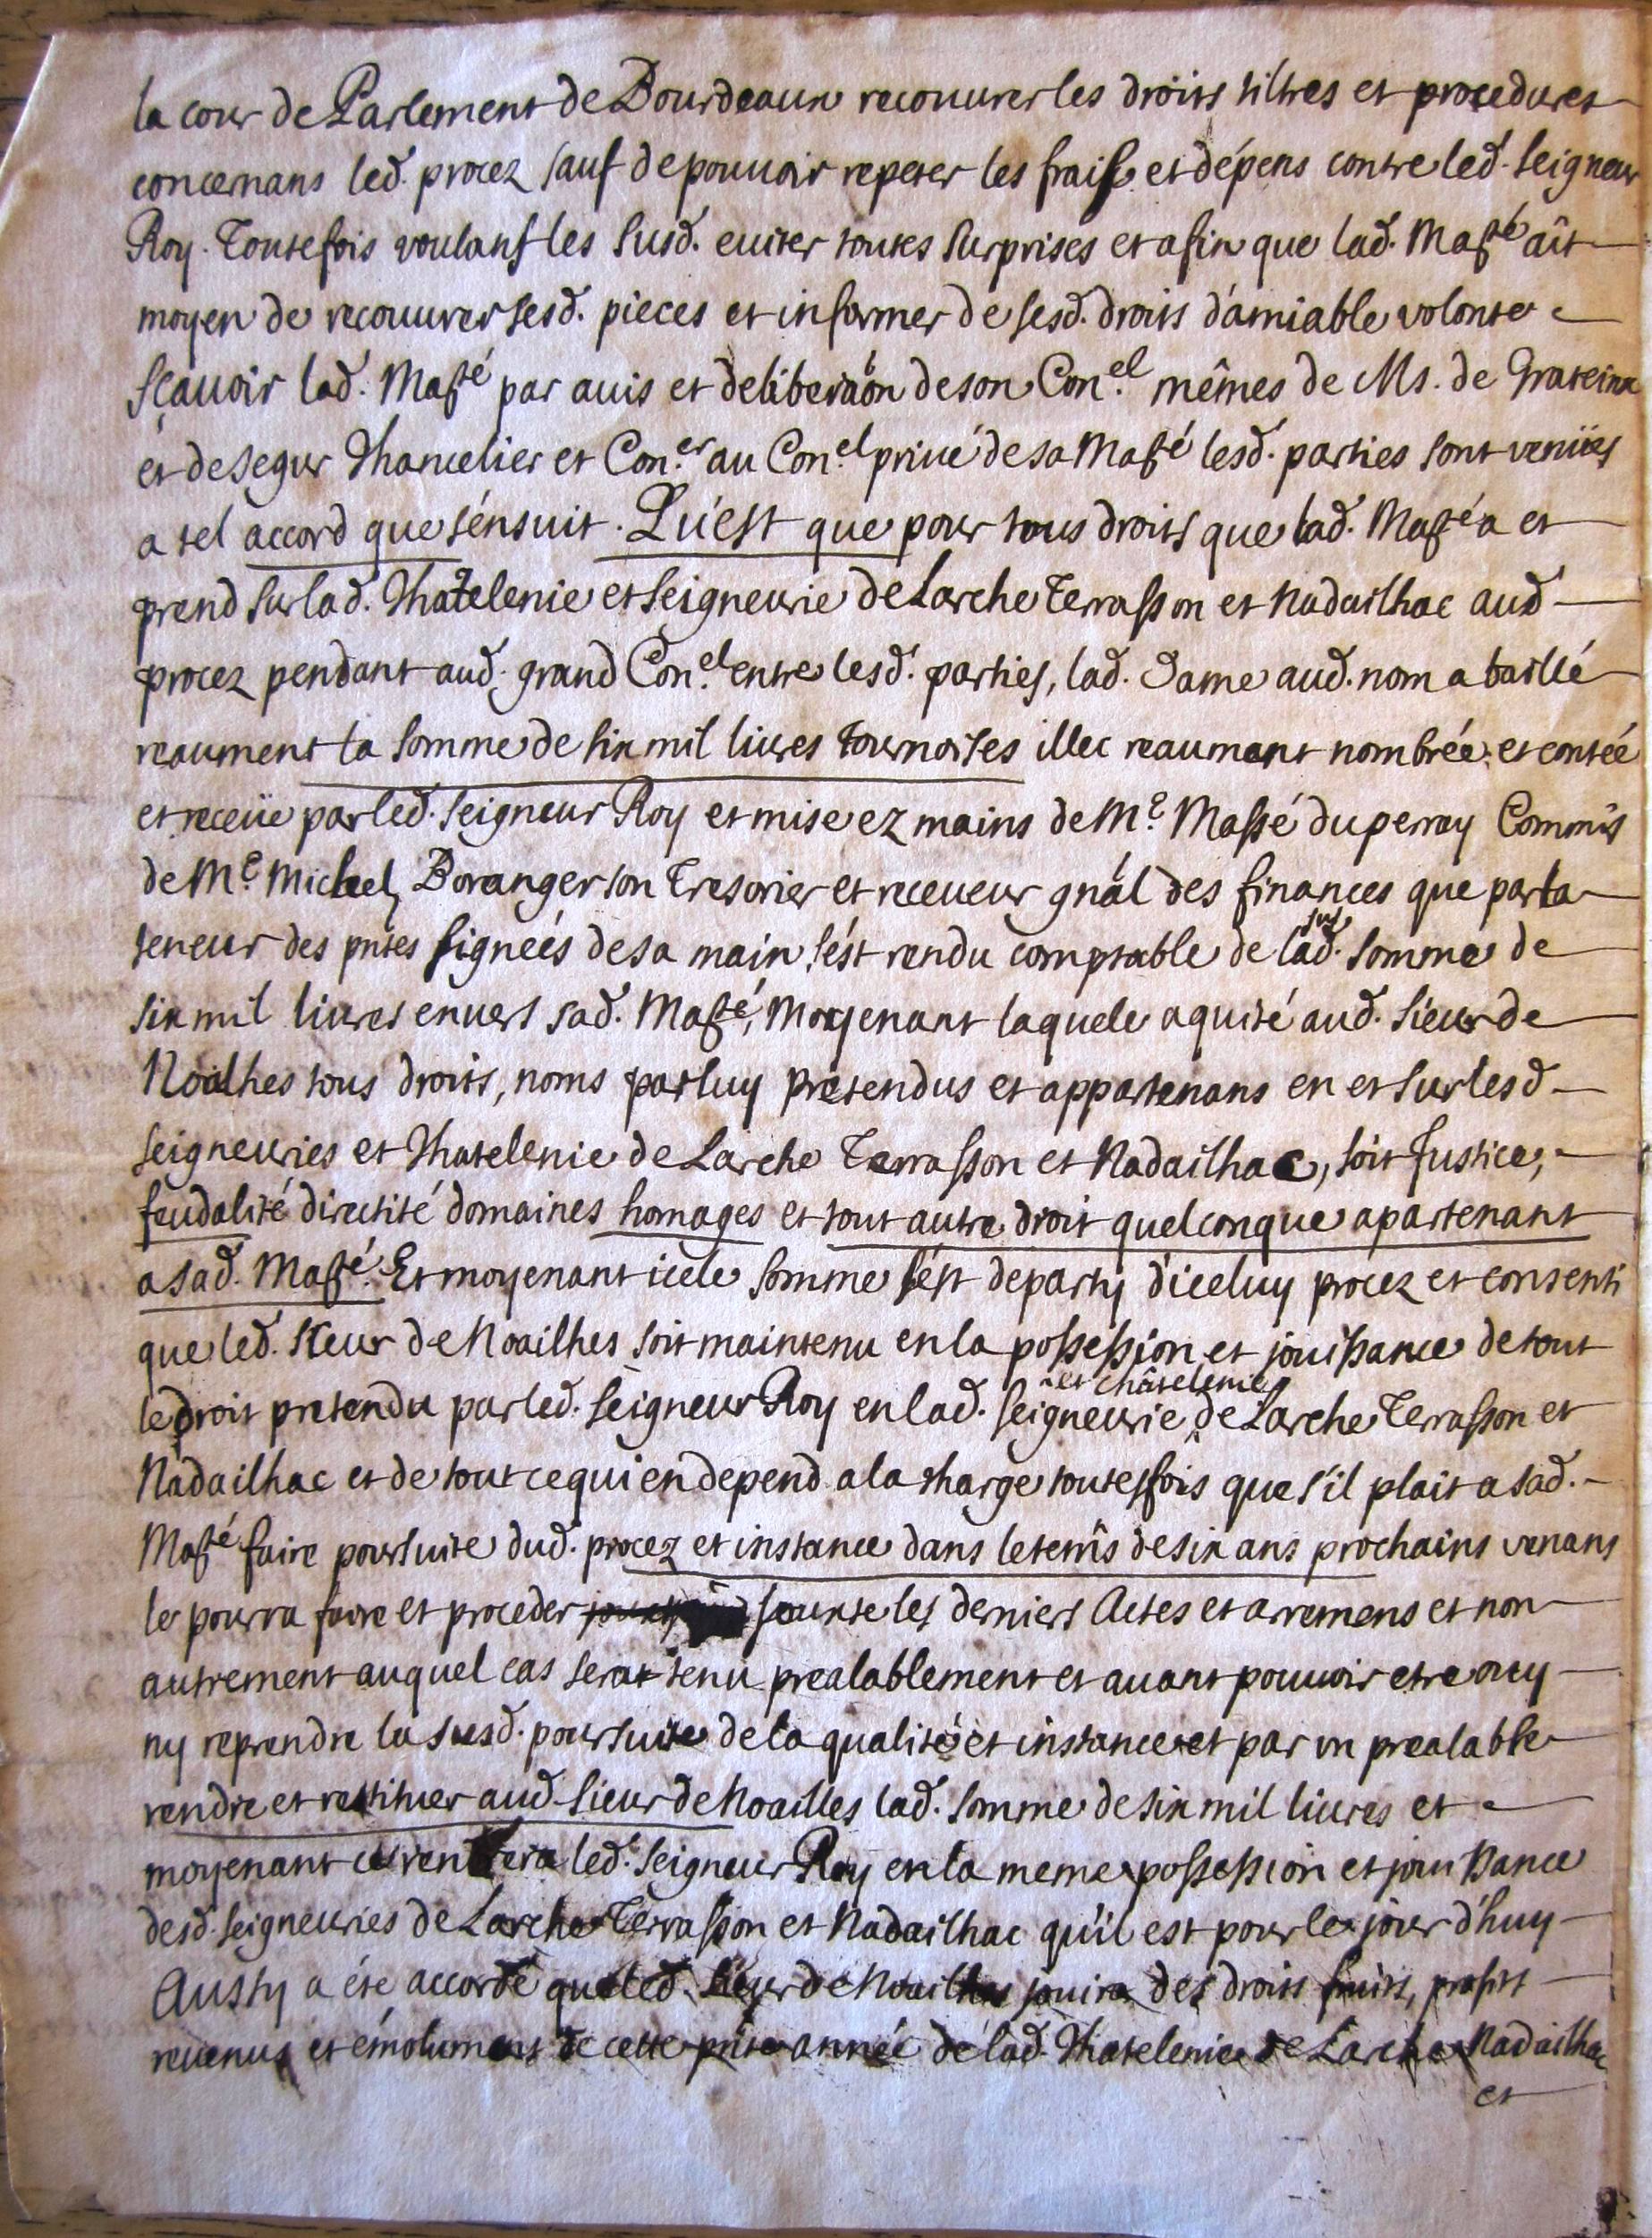 la cour de Parlement de Bourdeaux recouurer les droits tiltres et procedures
concernans led. procez sauf de pouuoir repeter les frais et dépens contre led. seigneur
Roy. Toutefois voulans les susd. euiter toutes surprises et afin que lad. Maj.té aît
moyen de recouurer sesd. pieces et informer de sesd. droits d'amiable volonte
sçauoir lad. Maj.té par auis et deliberaôn de son Con.el mêmes de Ms. de Grateins
et de Segur Chancelier et Con.er au Con.el priué de sa Maj.té lesd. parties sont venües
a tel accord que s'énsuit. Qu'est que pour tous droits que lad. Maj.té a et
prend sur lad. Chatelenie et seigneurie de Larche Terrasson et Nadailhac aud
procez pendant aud. grand Con.el entre lesd. parties, lad. Dame aud. nom a baillé
reaument la somme de six mil liures tournoises illec reaument nombrée et contée
et receüe par led. seigneur Roy et mise ez mains de M.e Massé duperray Commis
de M.e Michel Boranger son Tresorier et receueur gnâl des finances que par la
teneur des pntes signeés de sa main s'ést rendu comptable de lad. susd. somme de
six mil liures enuers sad. Maj.té, Moyenant laquele a quité aud. sieur de
Noailhes tous droits, noms par luy pretendus et appartenans en et sur lesd
seigneuries et Chatelenie de Larche Terrasson et Nadailhac, soit Justice,
feudalité directité domaines homages et tout autre droit quelconque apartenant
a sad. Maj.té. Et moyenant icele somme s'ést departy d'iceluy procez et consenti
que led. sieur de Noailhes soit maintenu en la possession et jouissance de tout
le droit pretendu par led. seigneur Roy en lad. seigneurie et châtelenie de Larche Terrasson et
Nadailhac et de tout ce qui en depend a la charge toutesfois que s'il plait a sad.
Maj.té faire poursuite dud. procez et instance dans le tems de six ans prochains venans
le pourra faire et proceder suiuant les derniers Actes et arremens et non
autrement auquel cas serat tenu prealablement et auant pouuoir etre ouy
ny reprendre la susd. poursuite de la qualité et instance et par vn prealable
rendre et restituer aud. sieur de Noailles lad. somme de six mil liures et
moyenant ce rentrera led. seigneur Roy en la meme possession et jouissance
desd. seigneuries de Larche Terrasson et Nadailhac qu'il est pour le jour d'huy
Aussy a éte accordé que led. sieur de Noailhes jouira des droits fruits, profits
reuenus et émolumens de cette pnte année de lad. Chatelenie de Larche Nadailhac
et